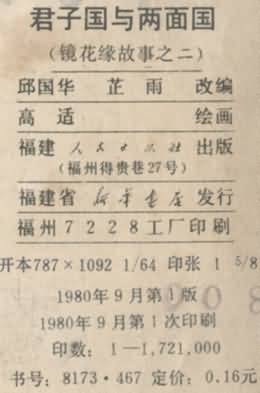 君子国与两面国
（镜花缘故事之二）
邱国华 芷雨 改编
高适 绘画
福建人民出版社 出版
（福州得贵巷27号）
福建省新华书店 发行
福州7228工厂印刷
开本787×1092 1/64 印张 1 5/8
1980年9月第1版
1980年9月第1次印刷
印数：1—1,721,000
书号：8173·467 定价：0.16元